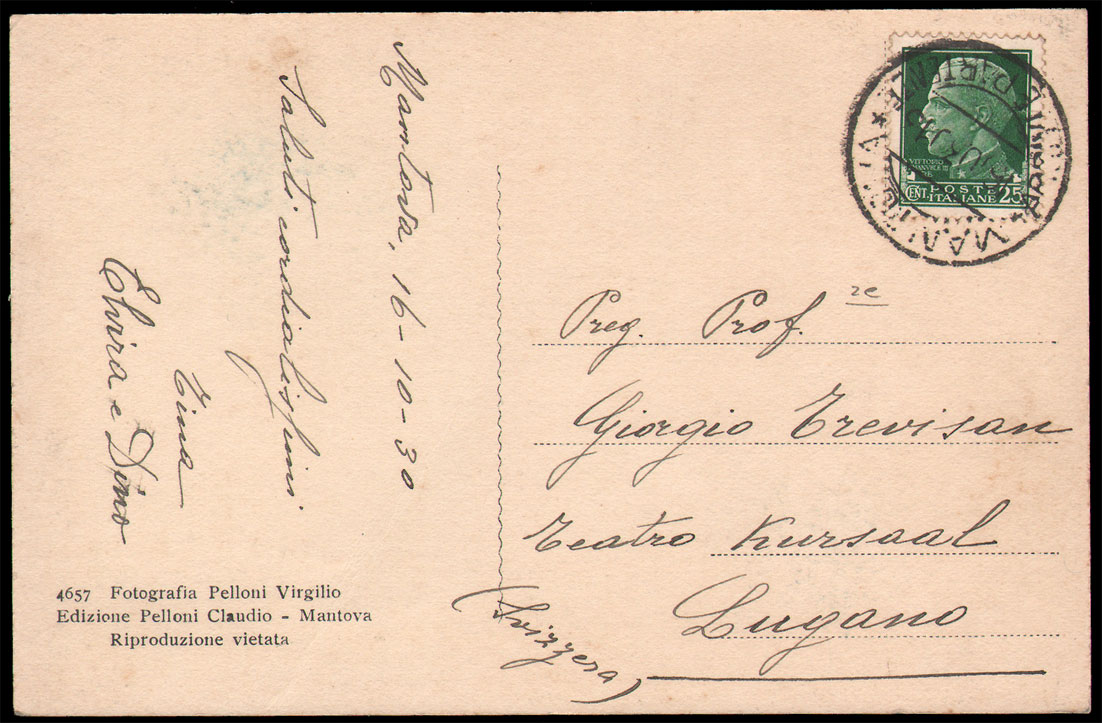 Mantova, 16-10-30
Saluti cordialissimi
Tina
Elvira e Dino
4657 Fotografia Pelloni Virgilio
Edizione Pelloni Claudio - Mantova
Riproduzione vietata
VITTORIO
EMANUELE III
RE
CENT POSTE 25
ITALIANE
MANTOVA
PARTENZE
ze
Preg. Prof.
Giorgio Trevisan
Teatro Kursaal
Lugano
(Svizzera)